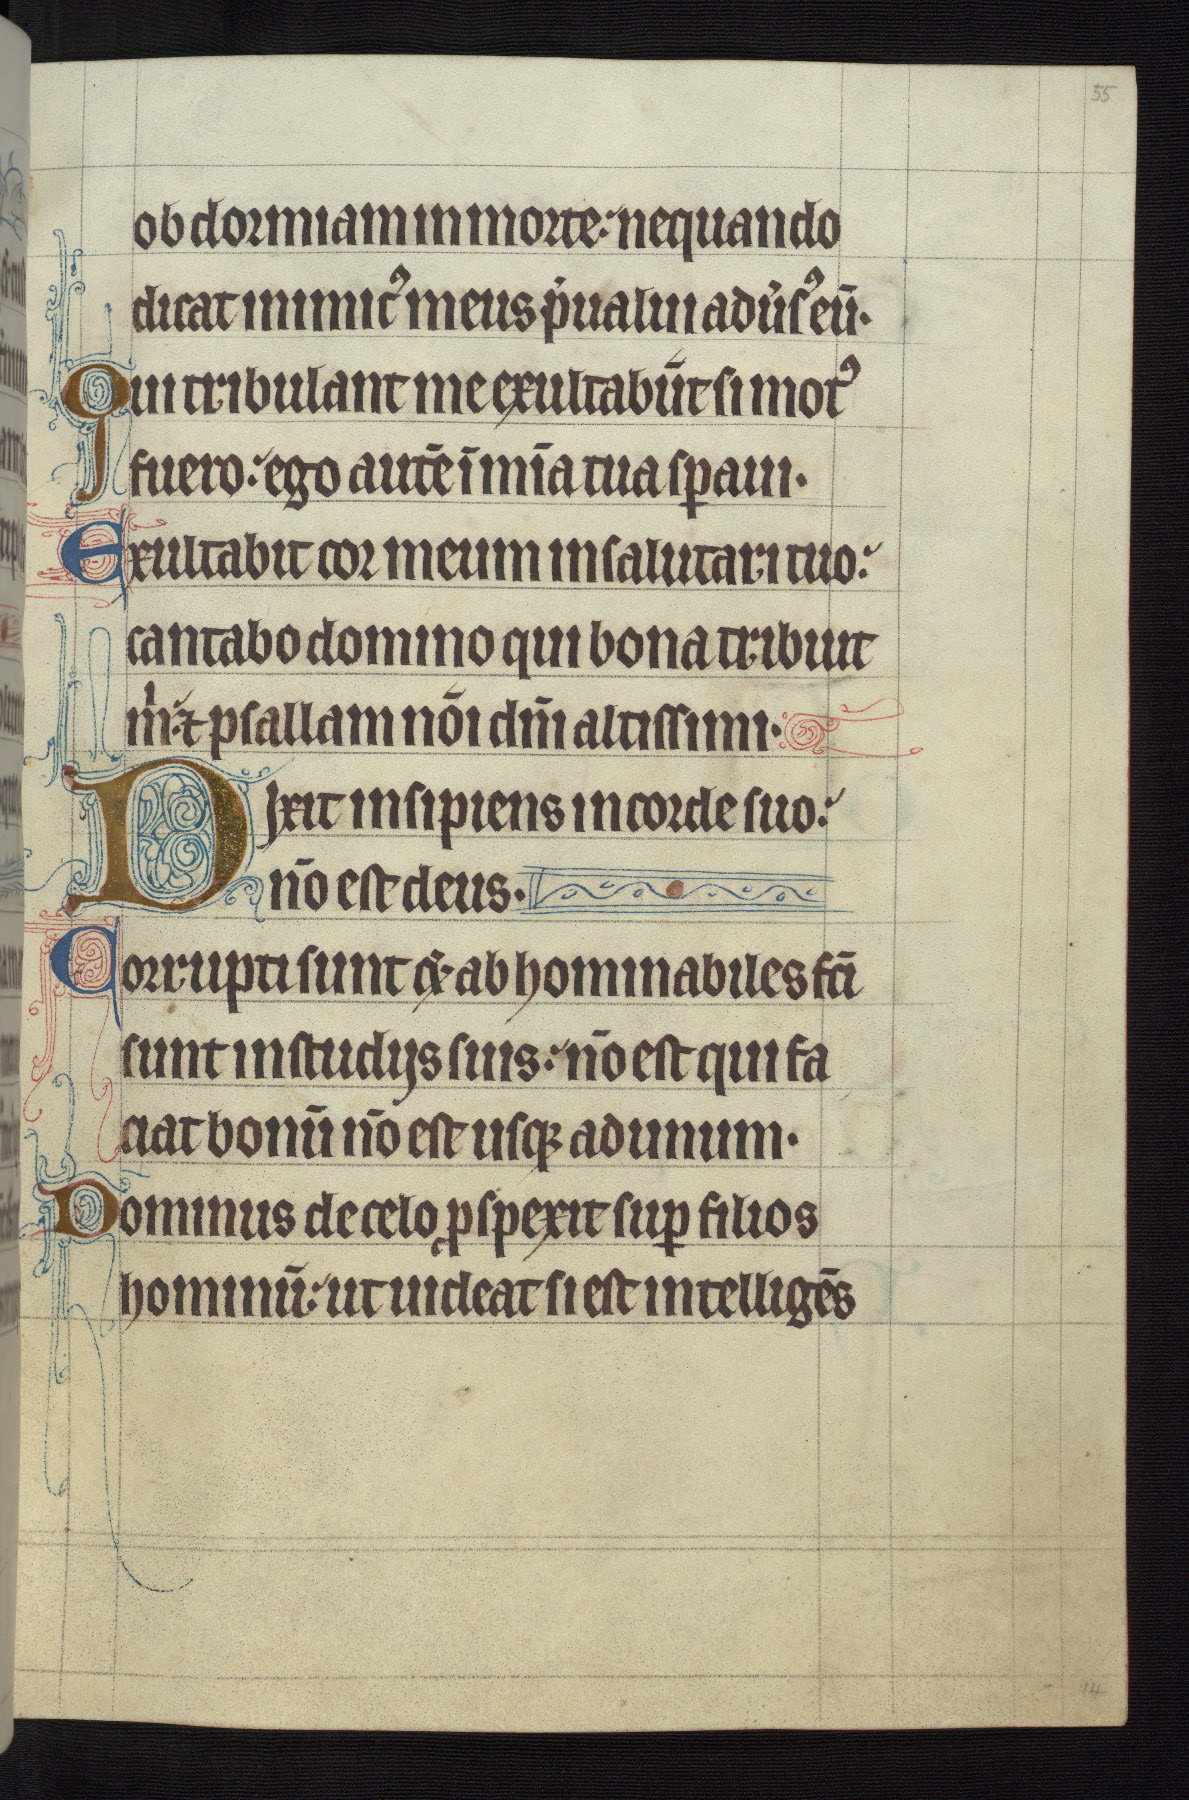 55
obdormiam in morte: nequando
dicat inimicꝰ meus p̾ualui adu̾sꝰ eū.
Qui tribulant me exultabūt si motꝰ
fuero: ego autē ī mīa tua sꝑaui.
Exultabit cor meum in salutari tuo:
cantabo domino qui bona tribuit
m̍: ⁊ psallam nōi dn̄i altissimi.
Dixit insipiens in corde suo:
nō est deus.
Corrupti sunt ⁊ abhominabiles fc̄i
sunt in studijs suis: nō est qui fa
ciat bonū nō est usqꝫ ad unum.
Dominus de celo ꝓspexit suꝑ filios
hominū: ut uideat si est intelligēs